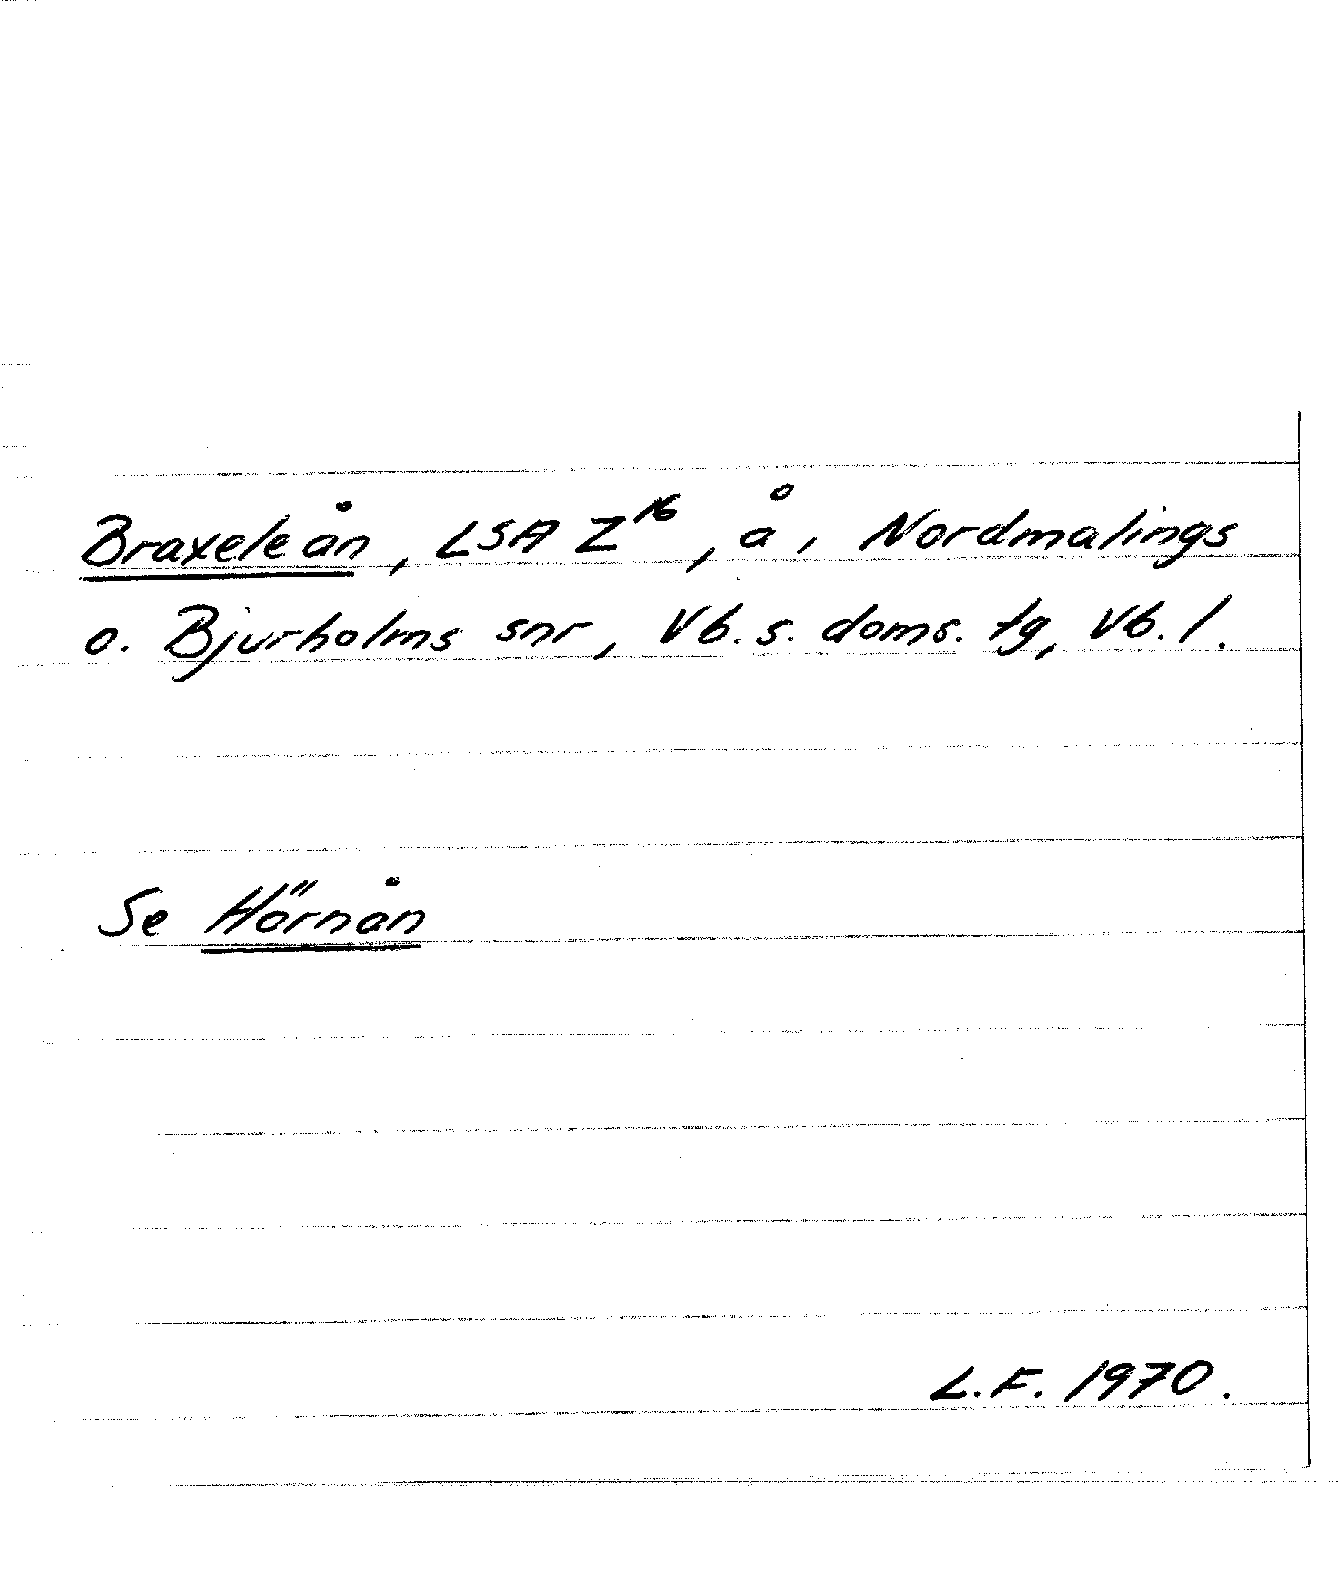 Braxeleån, LSA Z¹⁶, å, Nordmalings
o. Bjurholms snr, Vb. s. doms. tg, Vb. l.
Se Hörnån
L.F. 1970.